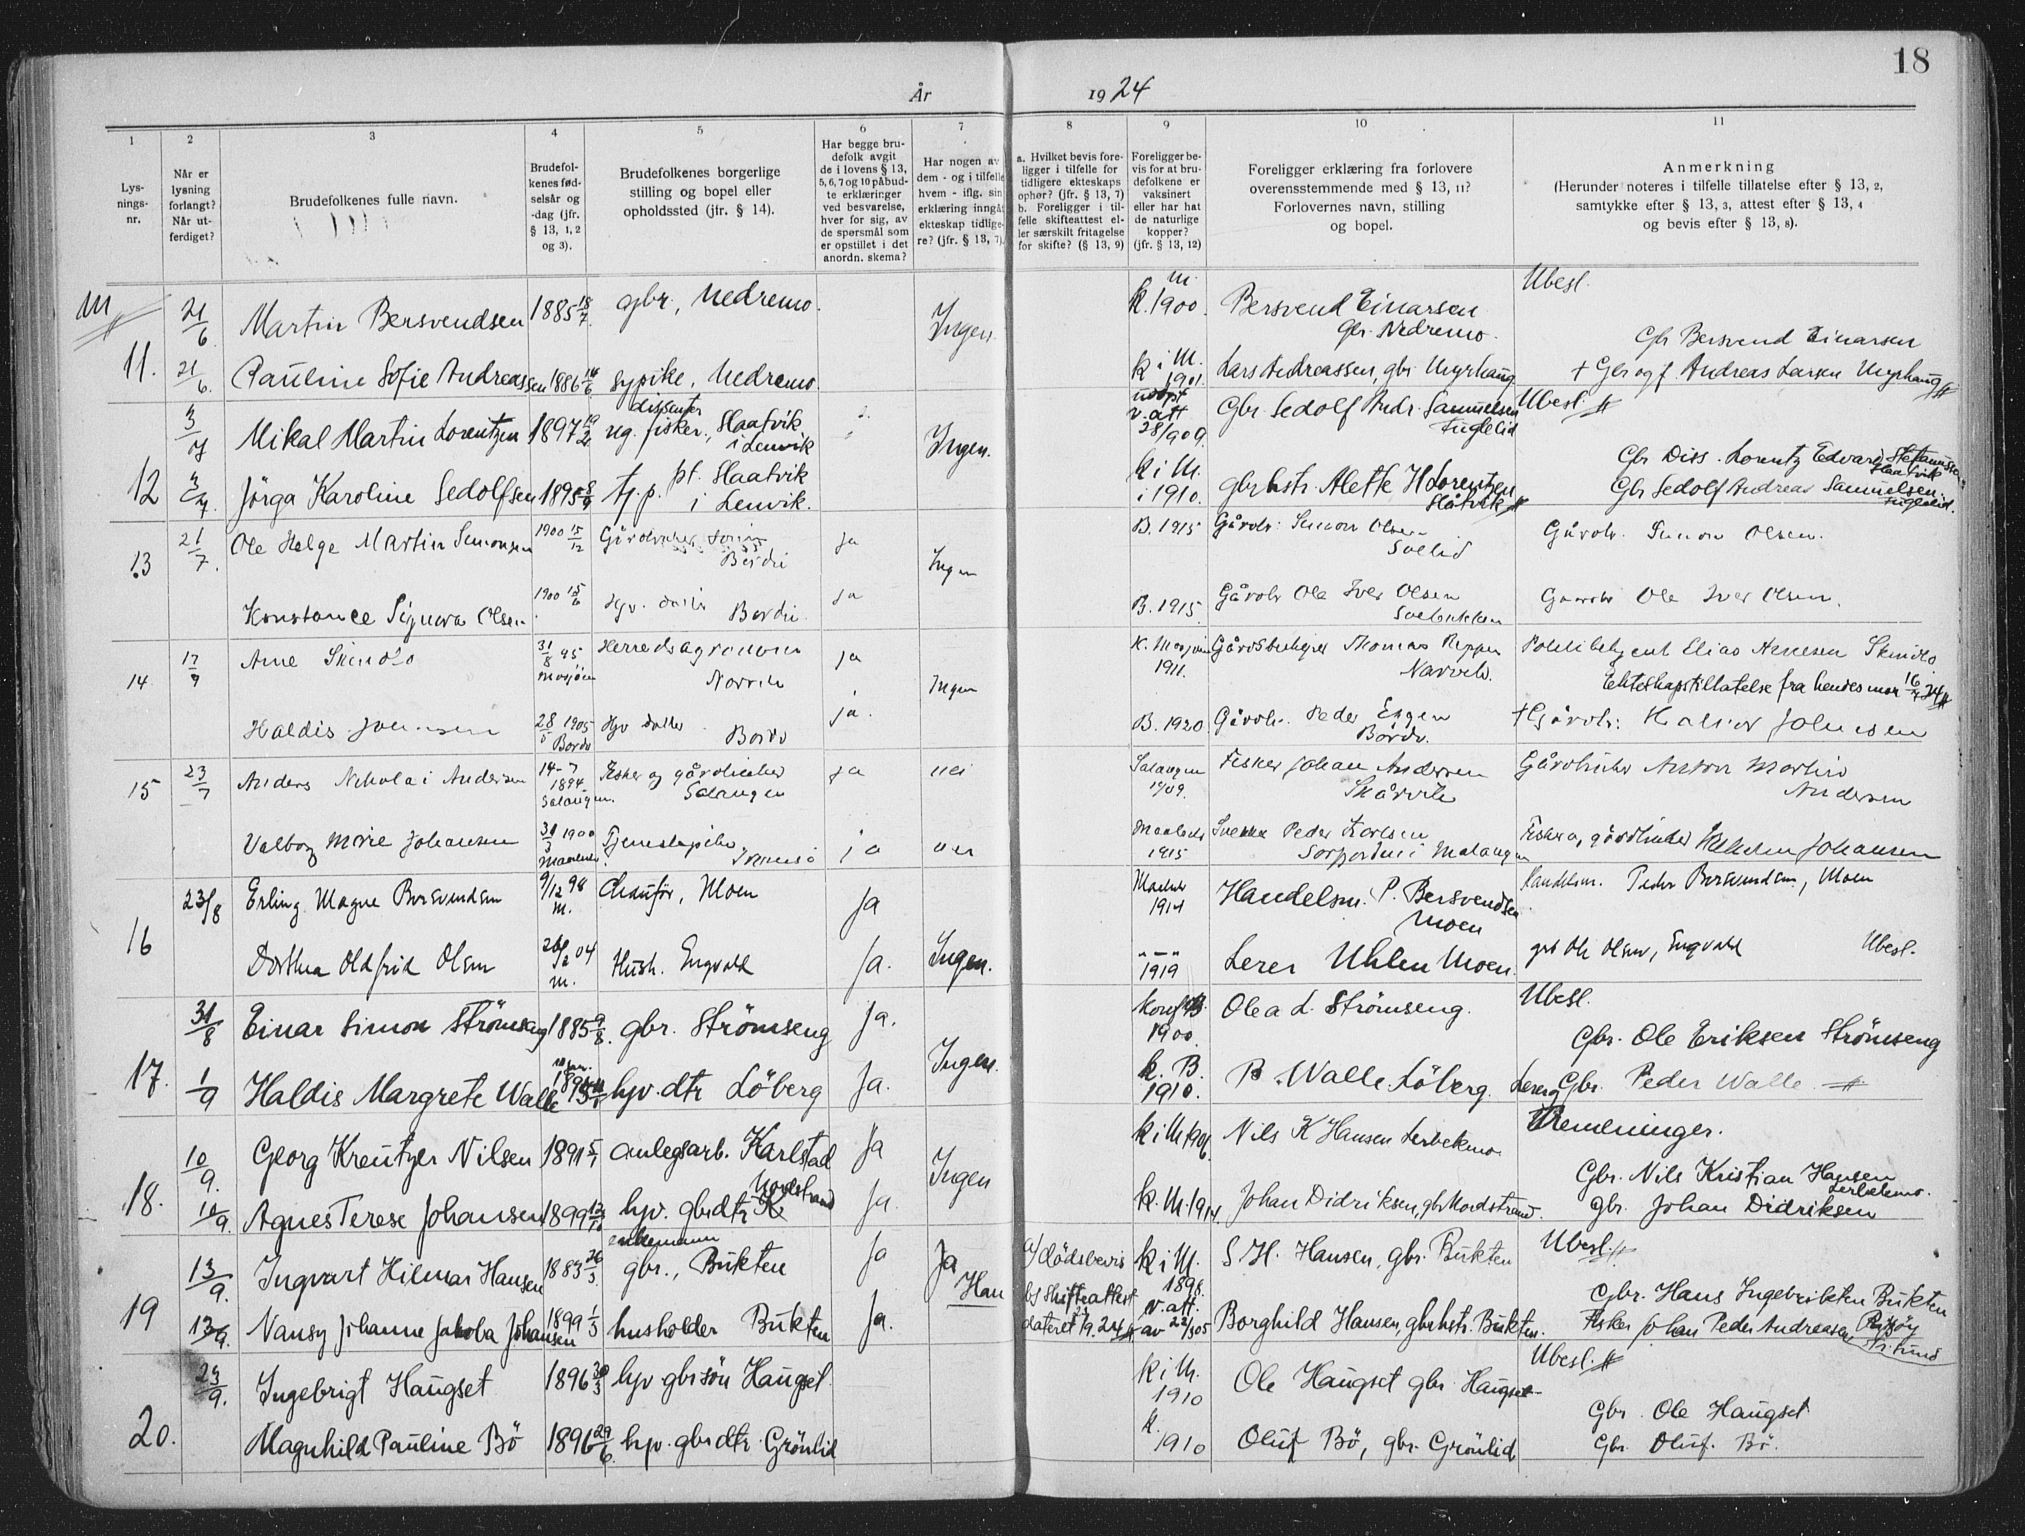 18
År 1924
1 2 3 4 5 6 7 8 9 10 11
Lys-
nings-
nr.
Når er
lysning
forlangt?
Når ut-
ferdiget?
Brudefolkenes fulle navn.
Brudefol-
kenes fød-
selsår og
-dag (jfr.
§ 13, 1, 2
og 3).
Brudefolkenes borgerlige
stilling og bopel eller
opholdssted (jfr. § 14).
Har begge bru-
defolk avgit
de i lovens § 13,
5, 6, 7 og 10 påbud-
te erklæringer
ved besvarelse,
hver for sig, av
de spørsmål som
er opstillet i det
anordn. skema?
Har nogen av
dem - og i tilfelle
hvem - iflg. sin
erklæring inngåt
ekteskap tidlige-
re? (jfr. § 13, 7).
a. Hvilket bevis fore-
ligger i tilfelle for
tidligere ekteskaps
ophør? (jfr. § 13, 7)
b. Foreligger i til-
felle skifteattest el-
ler særskilt fritagelse
for skifte? (§ 13, 9)
Foreligger be-
vis for at bru-
defolkene er
vaksinert
eller har hat
de naturlige
kopper?
(jfr. § 13, 12)
Foreligger erklæring fra forlovere
overensstemmende med § 13, 11?
Forlovernes navn, stilling
og bopel.
Anmerkning
(Herunder noteres i tilfelle tillatelse efter § 13, 2,
samtykke efter § 13, 3, attest efter § 13, 4
og bevis efter § 13, 8).
M 21/6 Martin Bersvendsen 1885 18/7 gbr, Nedremo. Ingen. k. M. 1900. Bersvend Einarsen gbr. Nedremo. Ubesl.
Gbr Bersvend Einarsen
11. 21/6 Pauline Sofie Andreassen 1886 14/6 sypike, Nedremo. k i M. 1901. Lars Andreassen, gbr Myrhaug + Gbr og f. Andreas Larsen Myrhaug
3/7 Mikal Martin Lorentzen 1897 19/2 dissenter ug. fisker, Haatvik i Lenvik Ingen. v. att 28/909. Gbr Sedolf Andr. Samuelsen Fuglelid Ubesl.
Gbr Diss. Lorentz Edvard Haatvik
12 3/7 Jörga Karoline Sedolfsen 1895 8/9 tj. p. pt Haatvik i Lenvik. k i M. i 1910. gbrhstr. Alette H Lorentzen Håtvik Gbr Sedolf Andreas Samuelsen Fuglelid.
13 21/7 Ole Helge Martin Simonsen 1900 15/12 Gårdbruker Bardu ja Ingen B. 1915 Gårdbr: Simon Olsen Sollid Gårdbr. Simon Olsen.
Konstance Signora Olsen 1900 15/6 Hjv. datter Bardu. ja B. 1915. Gårdbr Ole Iver Olsen Gaardbr Ole Iver Olsen.
14 17/9 Arne 31/8 95 Mosjøen Herredsagronom Narvik ja Ingen K. Mosjøen 1911. Gårdsbestyrer Thomas Narvik. Politibetjent Elias
Ekteskapstillatelse fra hendes mor 16/7 24
Haldis Johnsen 28/5 1905 Bardu Hjv datter Bardu ja. B. 1920 Gårdbr. Peder Engen Bardu. + Gårdbr: Johnsen
15 23/7 Anders Nikolai Andersen 14-7 1894 Salangen. Fisker og gårdbruker Salangen ja nei Salangen 1909. Fisker Johan Andersen Gårdbruker Anton Martin Andersen
Valborg Marie Johansen 31/3 1900 Maalselv Tjenestepike ja nei Maalselv 1915 Peder Karlsen i Malangen Fisker og gårdbruker Johansen
16 23/8 Erling Magne Bersvendsen 9/12 98 M. Chaufør, Moen Ja Maalselv 1914 Handelsm. P. Bersvendsen Moen Handelsm. Peder Bersvendsen, Moen
Dorthea Oldfrid Olsen 04 M. Hush. Engvald Ja. Ingen. 1919 Lerer Uhlen Moen. gbr Ole Olsen, Engvald Ubesl.
31/8 Einar Simon Strömseng 1885 9/8. gbr. Strömseng Ja. Konf. B. 1900. Ole a L. Strömseng. Ubesl.
Gbr. Ole Eriksen Strömseng
17. 1/9 Haldis Margrete Walle hjv. dtr Löberg Ja. Ingen. k. B. 1910. P. Walle Löberg. Lerer og Gbr. Peder Walle
10/9. Georg Kreutzer Nilsen 1891 5/1 anlegsarb. Karlstad Ja Ingen k i M 1906. Nils K Hansen Lerbekmo Tremenninger.
Gbr. Nils Kristian Hansen Lerbekmo.
18. 10/9. Agnes Terese Johansen 1899 hjv. gbrdtr Nordstrand Ja. k. M. 1914. Johan Didriksen, gbr Nordstrand. gbr. Johan Didriksen
13/9. Ingvart Hilmar Hansen 1883 26/3 enkemann gbr., Bukten Ja Ja Han a/ dödsbevis b/ skifteattest dateret 9. 24 k i M. 1898. S. H. Hansen, gbr. Bukten Ubesl.
Gbr. Hans Ingebrikten Bukten
19 13/9. Nansy Johanne Jakoba Johansen 1899 1/3 husholder Bukten Ja. v. att. av 22/305 Borghild Hansen, gbrhstr. Bukten. Fisker Johan Peder Andreasen
23/9. Ingebrigt Haugset 1896 30/3 hjv gbrsön Haugset. k i M. 1910 Ole Haugset gbr. Haugset Ubesl.
Gbr. Ole Haugset
20. Magnhild Pauline Bö 1896 29/6. hjv. gbrdtr. Grönlid k. 1910 Oluf Bö, gbr. Grönlid Gbr. Oluf. Bö.